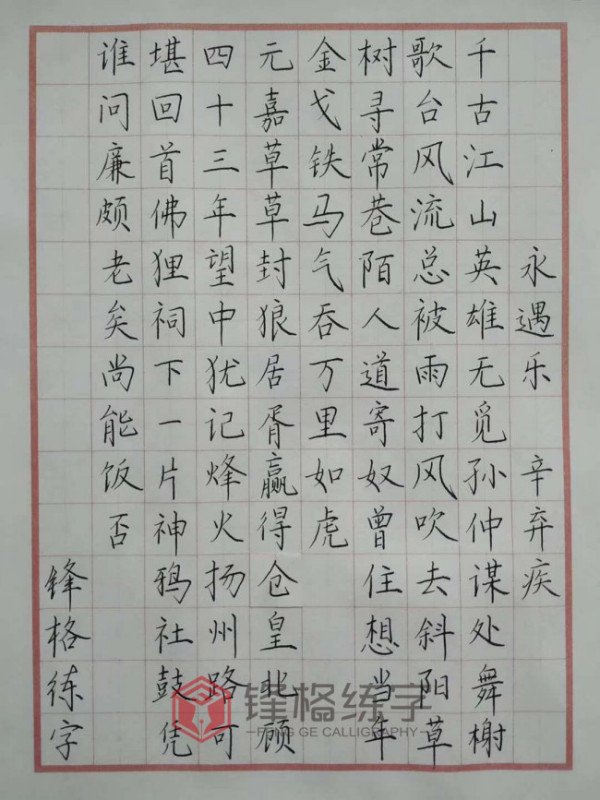 永遇乐 辛弃疾
千古江山英雄无觅孙仲谋处舞榭
歌台风流总被雨打风吹去斜阳草
树寻常巷陌人道寄奴曾住想当年
金戈铁马气吞万里如虎
元嘉草草封狼居胥赢得仓皇北顾
四十三年望中犹记烽火扬州路可
堪回首佛狸祠下一片神鸦社鼓凭
谁问廉颇老矣尚能饭否
锋格练字
锋格练字
FENG GE CALLIGRAPHY